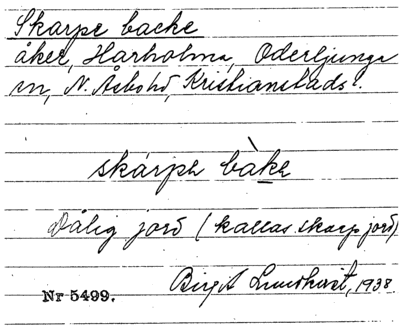 Skarpe backe
åker, Hårholma, Oderljunga
sn, N. Åsbo hd, Kristianstads l.
skárpe bàke
Dålig jord (kallas skarp jord)
Birgit Lundkvist, 1938.
Nr 5499.